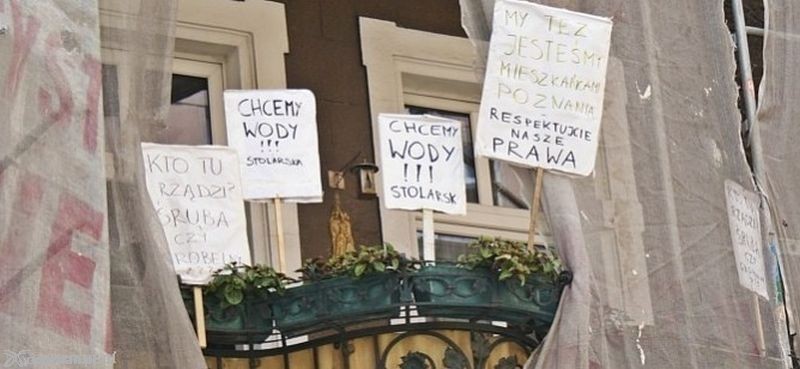 KTO TU
RZĄDZI?
ŚRUBA
CZY
WRÓBEL
CHCEMY
WODY
!!!
STOLARSKA
CHCEMY
WODY
!!!
STOLARSK
MY TEŻ
JESTEŚMY
MIESZKAŃCAMI
POZNANIA
RESPEKTUJCIE
NASZE
PRAWA
KTO TU
RZĄDZI
ŚRUBA
CZY